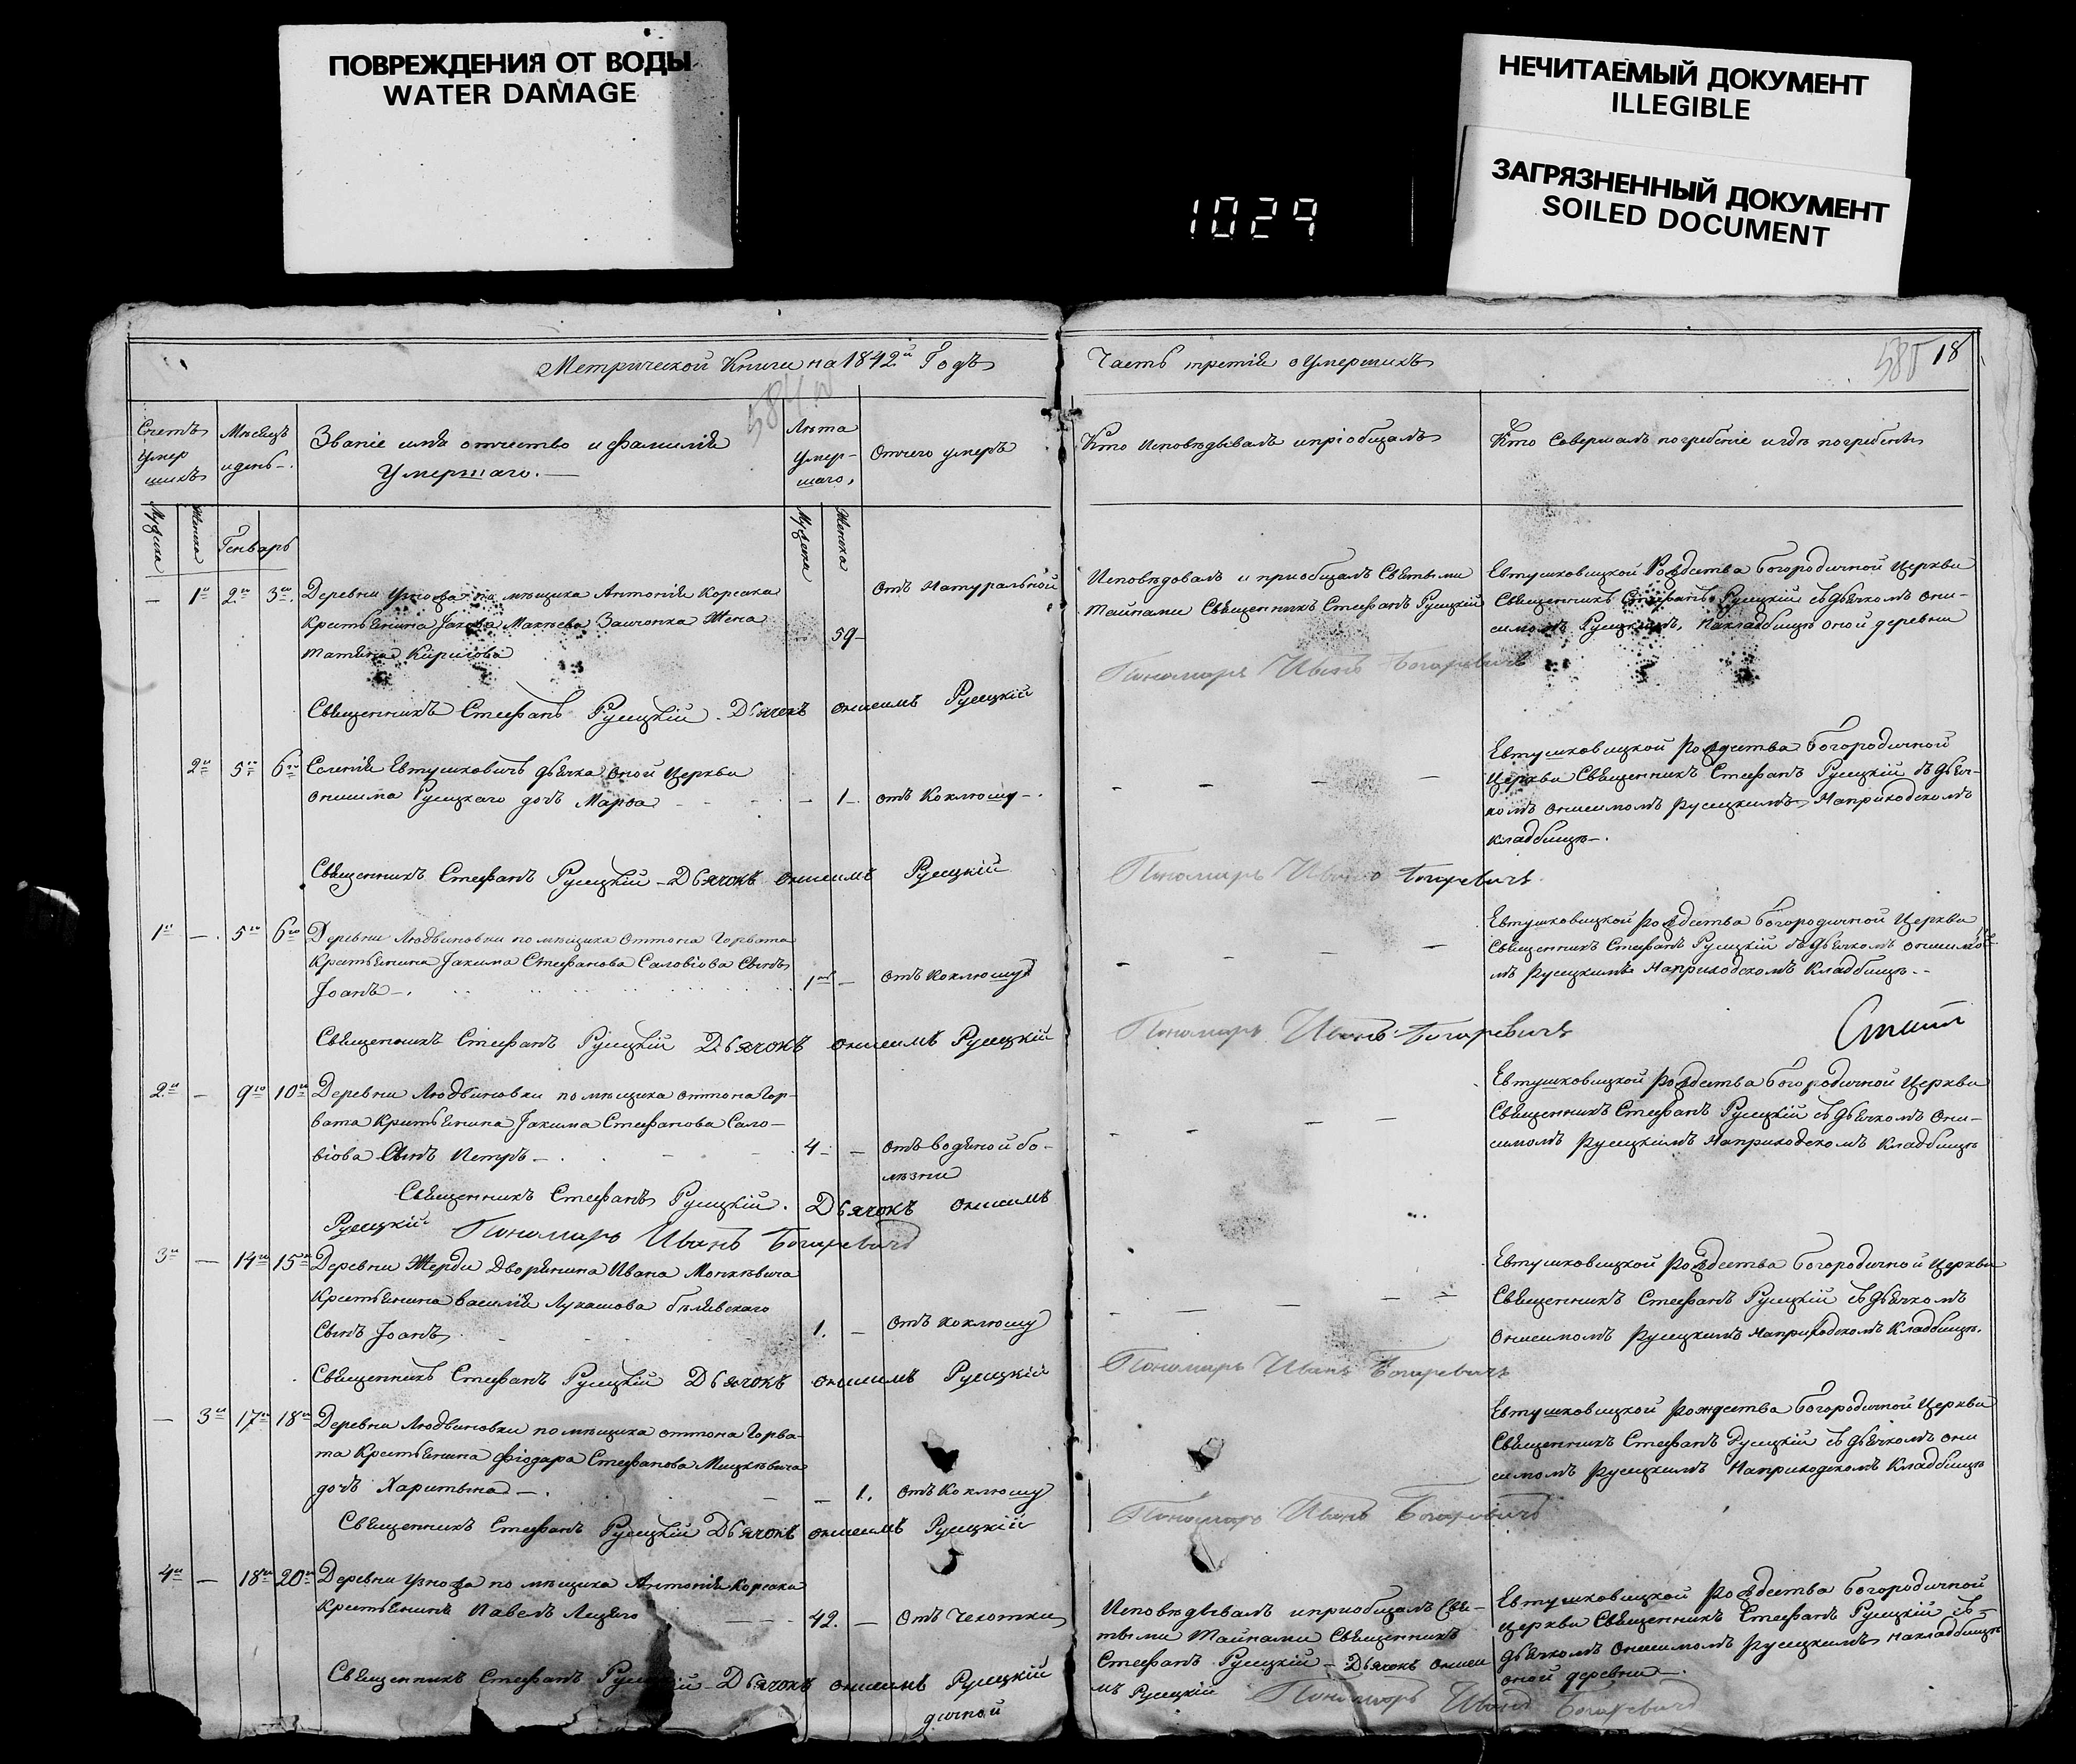 ПОВРЕЖДЕНИЯ ОТ ВОДЫ
WATER DAMAGE
НЕЧИТАЕМЫЙ ДОКУМЕНТ
ILLEGIBLE
ЗАГРЯЗНЕННЫЙ ДОКУМЕНТ
SOILED DOCUMENT
1029
Метрической Книги на 1842й Годъ
Часть третія о Умершихъ
585 18
Счетъ умершихъ
Мѣсяцъ и день
Званіе имя отчество и фамилія
Умершаго.
Лѣта умершаго
Отчего умеръ
Кто Исповѣдывалъ и пріобщалъ
Кто Совершалъ погребеніе и гдѣ погребены
Мужска Женска Генварь Мужска Женска
— 1я 2го 3го Деревни Узнога помѣщика Антонія Корсака
Крестьянина Јакова Макѣева Заичонка Жена
Татіяна Кирилова
59
Отъ Натуральной
Исповѣдовалъ и приобщалъ Святыми
Тайнами Священникъ Стефанъ Русецкій
Евтушковицкой Рождества Богородичной Церкви
Священникъ Стефанъ Русецкій съ дьячкомъ Они-
симомъ Русецкимъ, на кладбищѣ оной деревни
Пономарь Иванъ
Священникъ Стефанъ Русецкій. Дьячокъ Онисимъ Русецкій
2я 5го 6го Селенія Евтушковичъ дьячка оной Церкви
Онисима Русецкаго дочь Марѳа
— 1 отъ Коклюшу
Евтушковицкой Рождества Богородичной
Церкви Священникъ Стефанъ Русецкій съ дьяч-
комъ Онисимомъ Русецкимъ На приходскомъ
кладбищѣ.
Священникъ Стефанъ Русецкій Дьячокъ Онисимъ Русецкій
Пономарь Иванъ
1й — 5го 6го Деревни Людвиновки помѣщика Оттона Горвата
Крестьянина Јакима Стефанова Саловіова Сынъ
Јоанъ
1 — отъ Коклюшу
Евтушковицкой Рождества Богородичной Церкви
Священникъ Стефанъ Русецкій съ дьячкомъ Онисимо-
мъ Русецкимъ На приходскомъ Кладбищѣ
Священникъ Стефанъ Русецкій Дьячокъ Онисимъ Русецкій
Пономарь Иванъ
2й — 9го 10го Деревни Людвиновки помѣщика Оттона Гор-
вата Крестьянина Јакима Стефанова Сало-
віова Сынъ Петръ
4 — отъ водяной бо-
лѣзни
Евтушковицкой Рождества Богородичной Церкви
Священникъ Стефанъ Русецкій съ дьячкомъ Они-
симомъ Русецкимъ На приходскомъ Кладбищѣ
Священникъ Стефанъ Русецкій. Дьячокъ Онисимъ
Русецкій Пономарь Иванъ
3й — 14го 15го Деревни Жерди Дворянина Ивана Монкѣвича
Крестьянина Василія Лукашова Бѣлявскаго
Сынъ Јоанъ
1. — отъ коклюшу
Евтушковицкой Рождества Богородичной Церкви
Священникъ Стефанъ Русецкій съ дьячкомъ
Онисимомъ Русецкимъ На приходскомъ Кладбищѣ.
Священникъ Стефанъ Русецкій Дьячокъ Онисимъ Русецкій
Пономарь Иванъ
— 3я 17го 18го Деревни Людвиновки помѣщика Оттона Горва-
та Крестьянина Фіодара Стефанова Мицкѣвича
дочь Харитына
— 1. отъ Коклюшу
Евтушковицкой Рождества Богородичной Церкви
Священникъ Стефанъ Русецкій съ дьячкомъ Они
симомъ Русецкимъ На приходскомъ Кладбищѣ
Священникъ Стефанъ Русецкій Дьячокъ Онисимъ Русецкій
Пономарь Иванъ
4й — 18го 20го Деревни Узнога помѣщика Антонія Корсака
Крестьянинъ Павелъ
42. — Отъ Чехотки
Исповѣдывалъ и приобщалъ Свя-
тыми Тайнами Священникъ
Стефанъ Русецкій — Дьячокъ Ониси
мъ Русецкій Пономарь Иванъ
Евтушковицкой Рождества Богородичной
Церкви Священникъ Стефанъ Русецкій съ
дьячкомъ Онисимомъ Русецкимъ на кладбищѣ
оной деревни.
Священникъ Стефанъ Русецкій Дьячокъ Онисимъ Русецкій